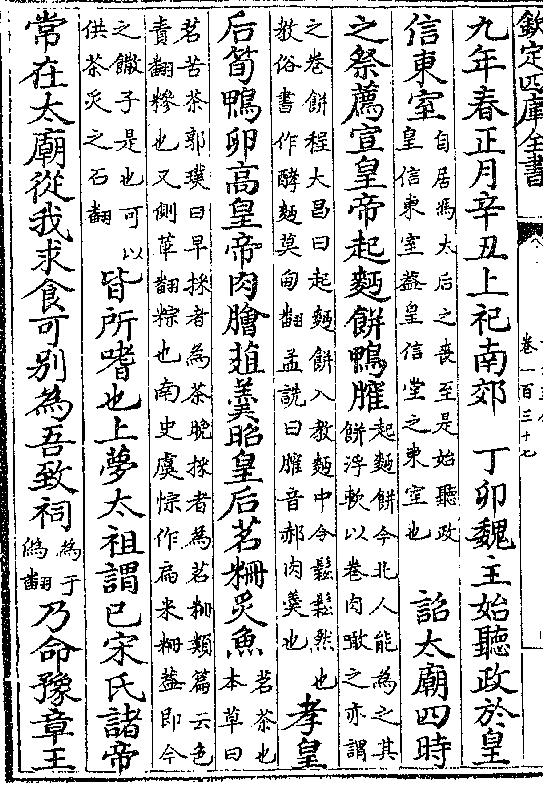 欽定四庫全書
卷一百三十七
九年春正月辛丑上祀南郊　丁卯魏主始聽政於皇
信東室
自居馮太后之喪至是始聽政
皇信東室葢皇信堂之東室也
詔太廟四時
之祭薦宣皇帝起麪餅鴨臛
起麪餅今北人能為之其
餅浮軟以卷肉噉之亦謂
之卷餅程大昌曰起麪餅入教麪中令鬆鬆然也
教俗書作酵麪莫甸翻孟詵曰臛音郝肉羮也
孝皇
后筍鴨卵高皇帝肉膾葅羮昭皇后茗粣炙魚
茗茶也
本草曰
茗苦茶郭璞曰早採者為茶晚採者為茗粣類篇云色
責翻糝也又側革翻粽也南史虞悰作扁米粣葢即今
之饊子是也可以
供茶炙之石翻
皆所嗜也上夢太祖謂已宋氏諸帝
常在太廟從我求食可別為吾致祠
為于
偽翻
乃命豫章王